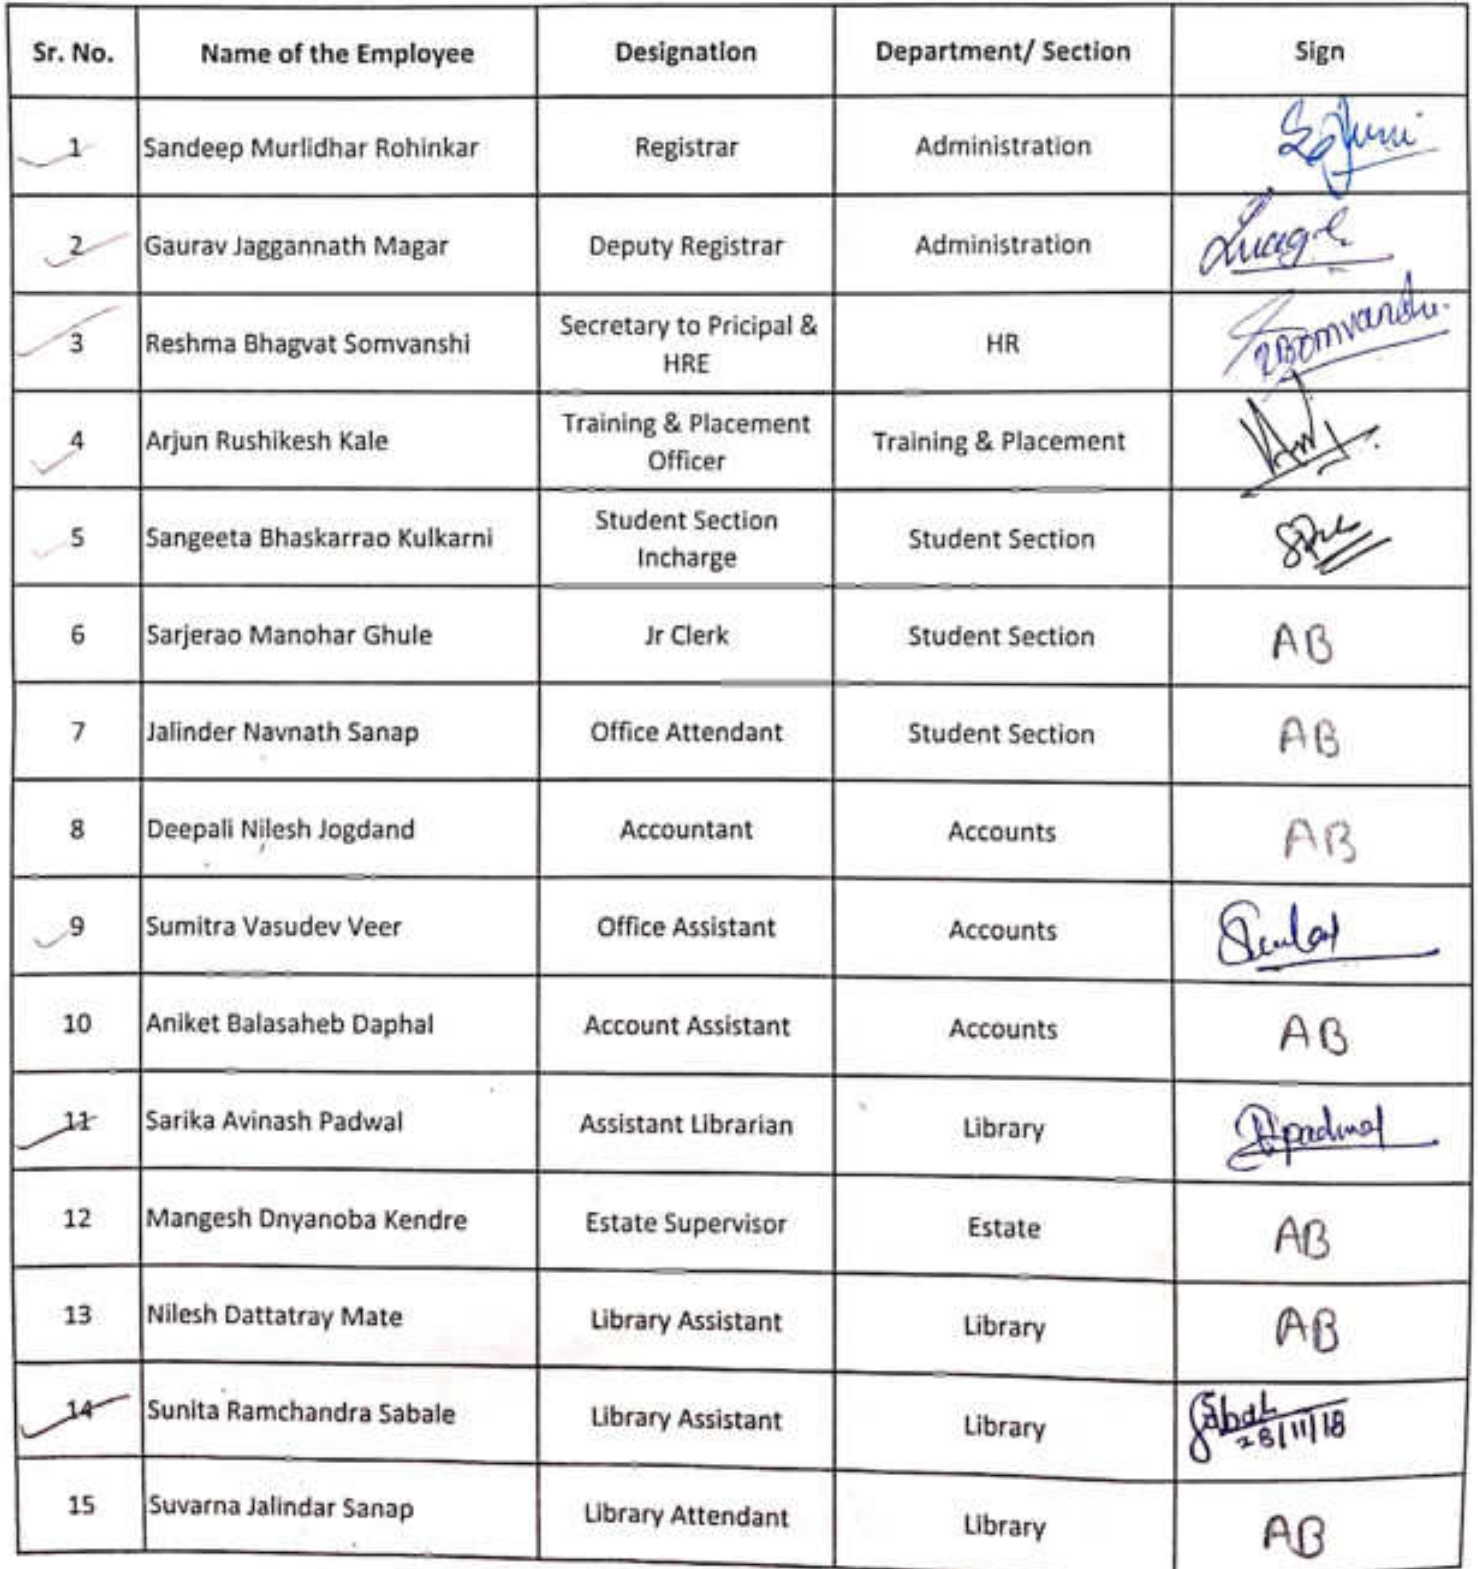 Sr. No. Name of the Employee Designation Department/ Section Sign
1 Sandeep Murlidhar Rohinkar Registrar Administration
2 Gaurav Jaggannath Magar Deputy Registrar Administration
3 Reshma Bhagvat Somvanshi Secretary to Pricipal & HR
HRE
4 Arjun Rushikesh Kale Training & Placement Training & Placement
Officer
5 Sangeeta Bhaskarrao Kulkarni Student Section Student Section
Incharge
6 Sarjerao Manohar Ghule Jr Clerk Student Section AB
7 Jalinder Navnath Sanap Office Attendant Student Section AB
8 Deepali Nilesh Jogdand Accountant Accounts AB
9 Sumitra Vasudev Veer Office Assistant Accounts
10 Aniket Balasaheb Daphal Account Assistant Accounts AB
11 Sarika Avinash Padwal Assistant Librarian Library
12 Mangesh Dnyanoba Kendre Estate Supervisor Estate AB
13 Nilesh Dattatray Mate Library Assistant Library AB
14 Sunita Ramchandra Sabale Library Assistant Library
28/11/18
15 Suvarna Jalindar Sanap Library Attendant Library AB